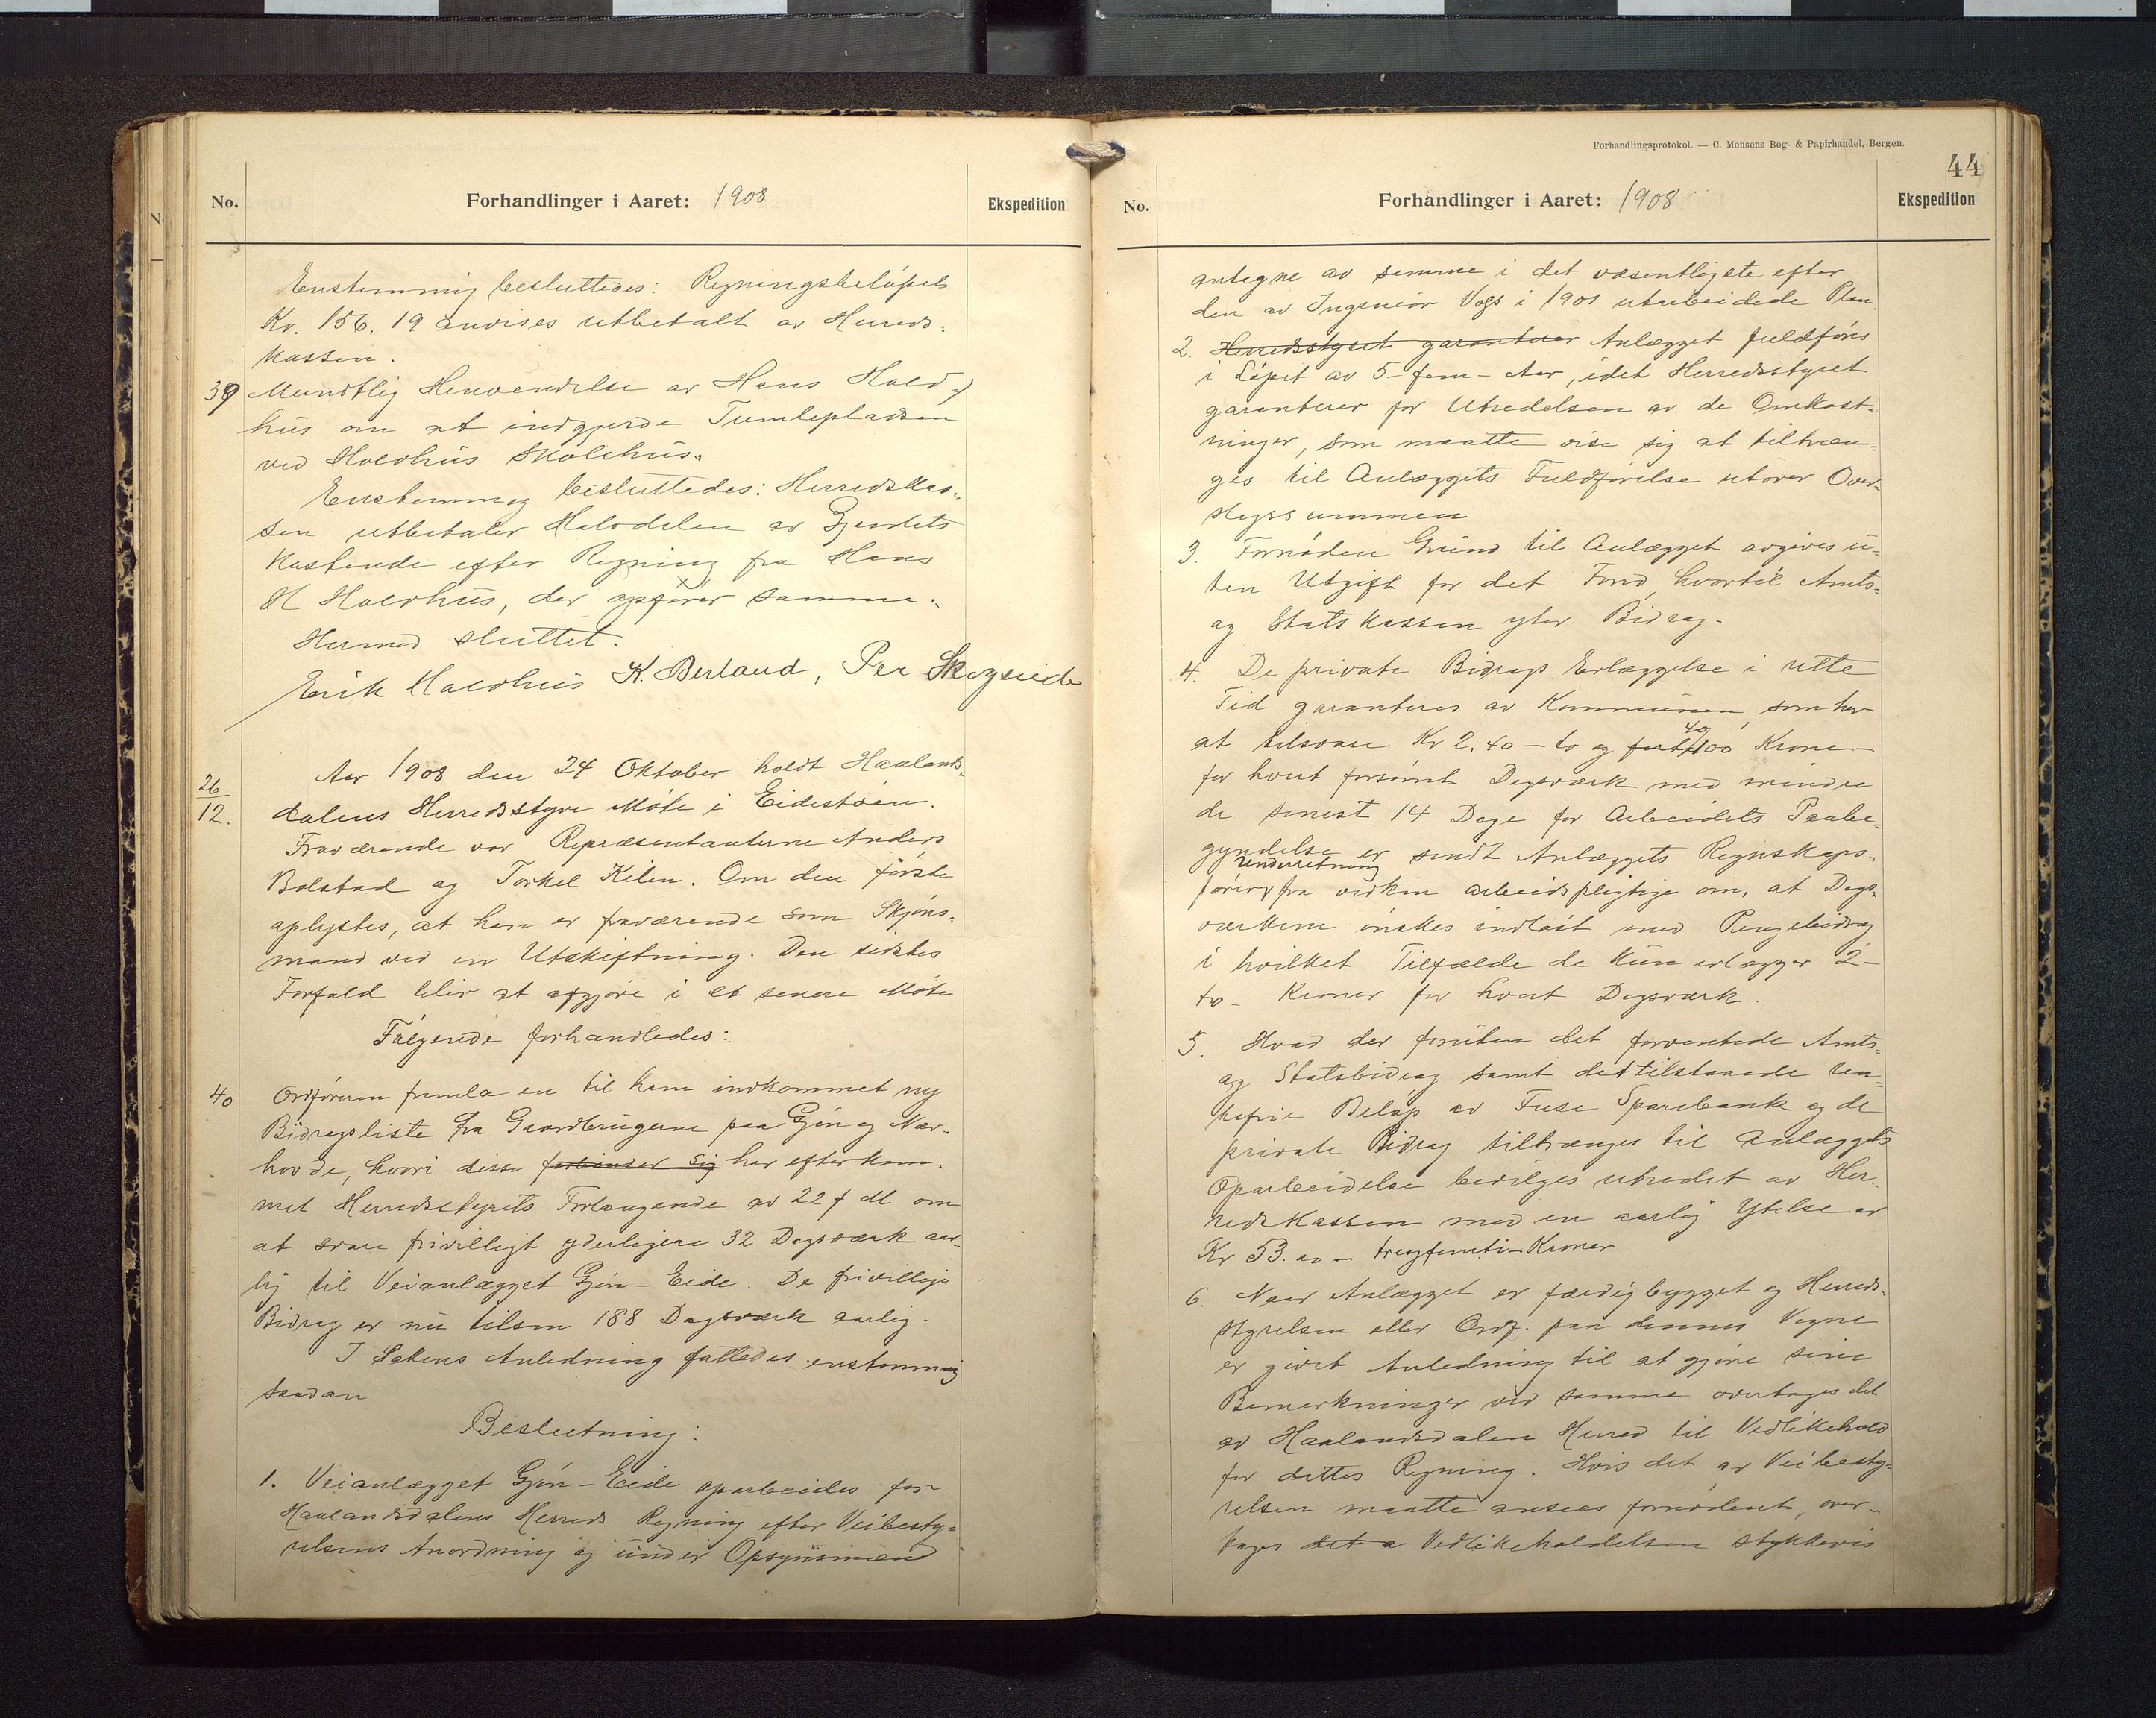 No.
Forhandlinger i Aaret: 1908
Ekspedition
Enstemmig besluttedes: Regningsbeløpet
Kr. 156.19 anvises utbetalt av Herreds-
kassen.
39 Mundtlig Henvendelse av Hans Hold-
hus om at indgjerde Tumlepladsen
ved Holdhus Skolehus.
Enstemmig besluttedes: Herredskas-
sen utbetaler Halvdelen av Gjerdets
Kostende efter Regning fra Hans
H Holdhus, der opfører samme.
Hermed sluttet.
Erik Holdhus K. Berland, Per Skogseide
26/12.
Aar 1908 den 24 Oktober holdt Haalands-
dalens Herredsstyre Møte i Eidestøen.
Fraværende var Repræsentanterne Anders
Bolstad og Torkel Kilen. Om den første
oplystes, at han er fraværende som Skjøns-
mand ved en Utskiftning. Den sidstes
Forfald blir at afgjøre i et senere Møte
Følgende forhandledes:
40 Ordføreren fremla en til ham indkommet ny
Bidragsliste fra Gaardbrugerne paa Gjøn og Nær-
hovde, hvori disse forbinder sig har efterkom-
met Herredsstyrets Forlangende av 22 f M om
at svare frivilligt yderligere 32 Dagsværk aar-
lig til Veianlægget Gjøn - Eide. De frivillige
Bidrag er nu tilsm 188 Dagsværk aarlig.
I Sakens Anledning fattedes enstemmig
saadan
Beslutning:
1. Veianlægget Gjøn - Eide oparbeides for
Haalandsdalens Herreds Regning efter Veibesty-
relsens Anordning og under Opsynsmænd
Forhandlingsprotokol. — C. Monsens Bog- & Papirhandel, Bergen.
44
No.
Forhandlinger i Aaret: 1908
Ekspedition
antagne av samme i det væsentligste efter
den av Ingeniør Vogs i 1901 utarbeidede Plan
2. Herredsstyret garanterer Anlægget fuldføres
i Løpet av 5 - fem - Aar, idet Herredsstyret
garanterer for Utredelsen av de Omkost-
ninger, som maatte vise sig at tiltræn-
ges til Anlæggets Fuldførelse utover Over-
slagssummen
3. Fornøden Grund til Anlægget avgives u-
ten Utgift for det Fond, hvortil Amts-
og Statskassen yter Bidrag.
4. De private Bidrags Erlæggelse i rette
Tid garanteres av Kommunen, som har
at tilsvare Kr 2.40 - to og 40/100 Krone -
for hvert forsømt Dagsværk med mindre
de senest 14 Dage før Arbeidets Paabe-
gyndelse er sendt Anlæggets Regnskaps-
fører underretning fra vedkm arbeidspligtige om, at Dags-
værkene ønskes indløst med Pengebidrag
i hvilket Tilfælde de kun erlægger 2 -
to - Kroner for hvert Dagsværk.
5. Hvad der foruten det forventede Amts-
og Statsbidrag samt det tilstaaede ren-
tefrie Beløp av Fuse Sparebank og de
private Bidrag tiltrænges til Anlæggets
Oparbeidelse bevilges utredet av Her-
redskassen med en aarlig Ytelse av
Kr 53.00 - treogfemti - Kroner
6. Naar Anlægget er færdigbygget og Herreds-
styrelsen eller Ordf. paa dennes Vegne
er givet Anledning til at gjøre sine
Bemerkninger ved samme overtages det
av Haalandsdalen Herred til Vedlikehold
for dettes Regning. Hvis det av Veibesty-
relsen maatte ansees fornødent, over-
tages det a Vedlikeholdelsen stykkevis